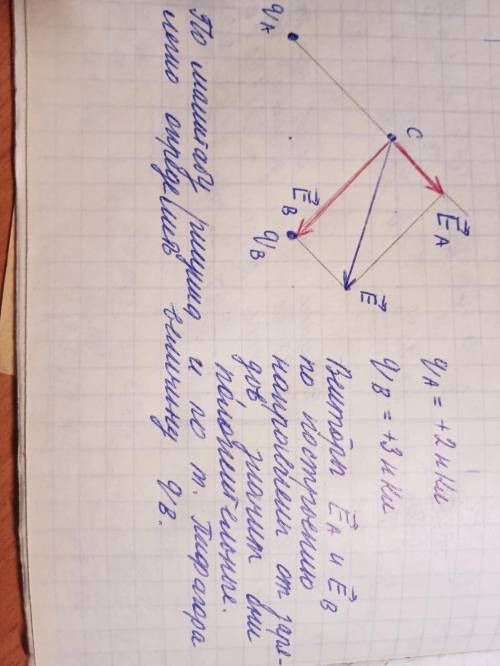 q_A
C
E⃗_A
E⃗_B
q_B
E⃗
q_A = +2 нКл
q_B = +3 нКл
Векторы E⃗_A и E⃗_B
по построению
направлены от заря-
дов значит они
положительные.
По масштабу рисунка и по т. Пифагора
легко определить величину q_B.